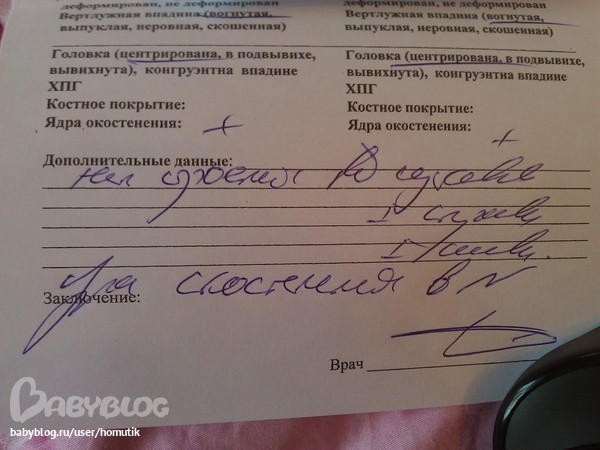 деформирован, не деформирован деформирован, не деформирован
Вертлужная впадина (вогнутая, Вертлужная впадина (вогнутая,
выпуклая, неровная, скошенная) выпуклая, неровная, скошенная)
Головка (центрирована, в подвывихе, Головка (центрирована, в подвывихе,
вывихнута), конгруэнтна впадине вывихнута), конгруэнтна впадине
ХПГ ХПГ
Костное покрытие: Костное покрытие:
Ядра окостенения: + Ядра окостенения: +
Дополнительные данные:
Заключение:
в N
Врач
BABYBLOG
babyblog.ru/user/homutik